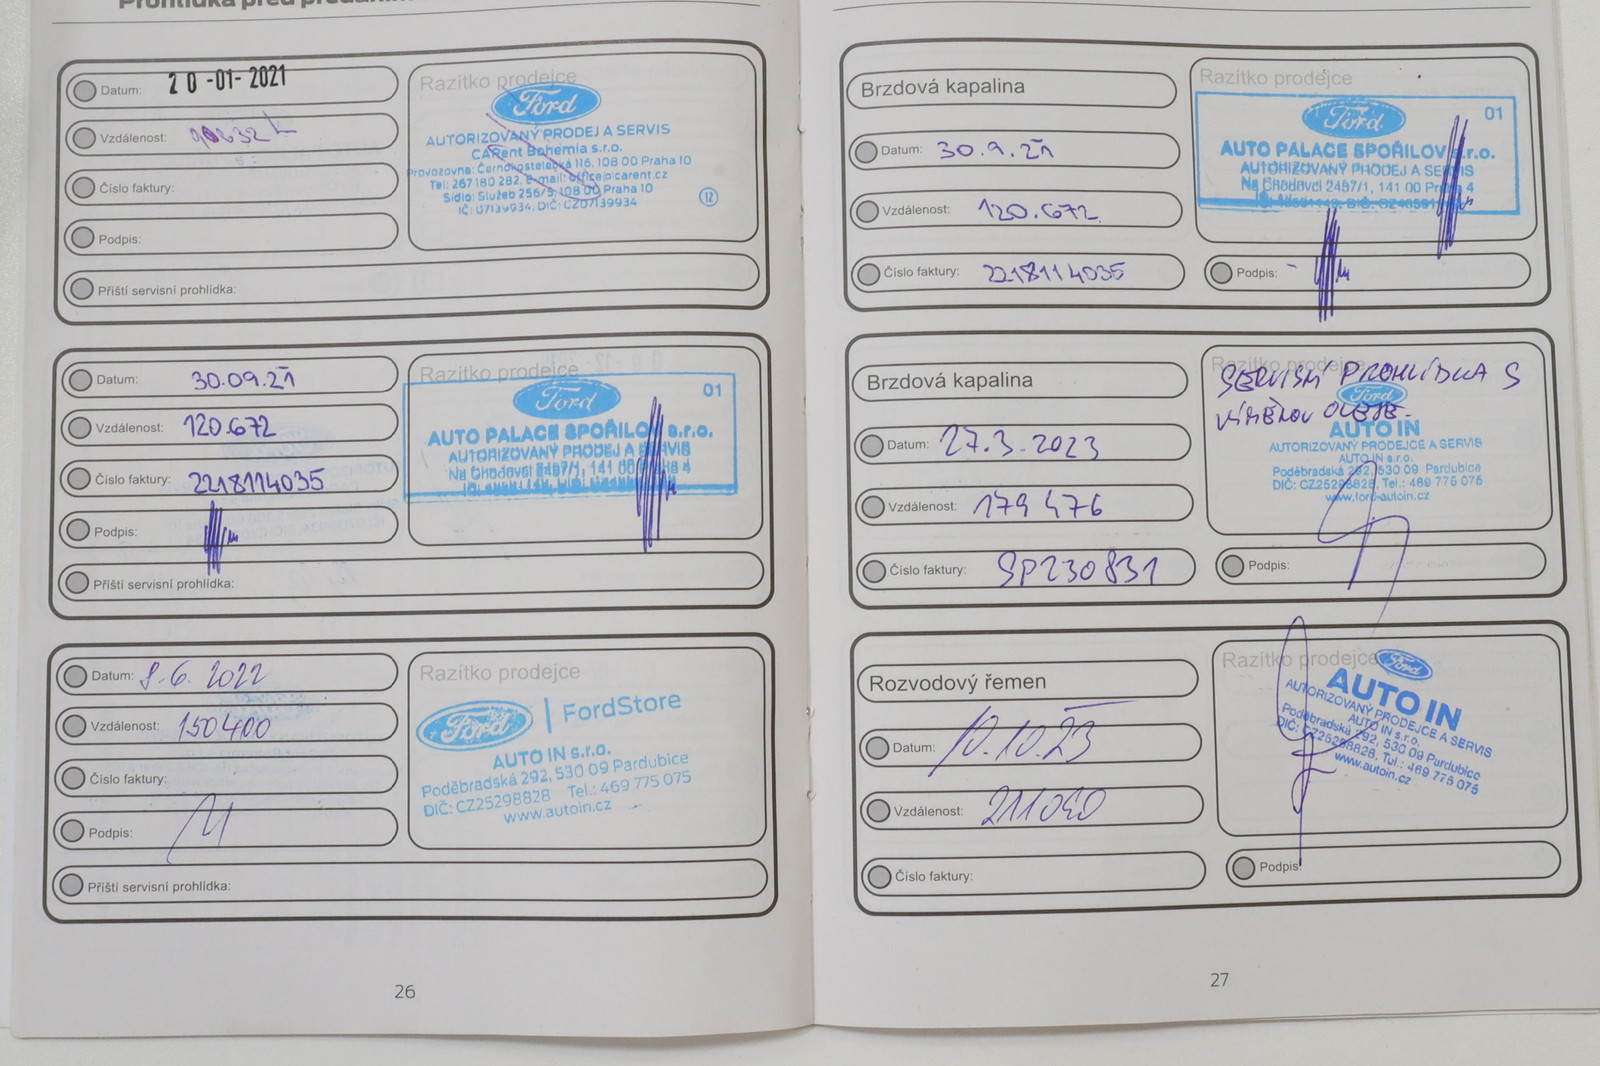 Datum: 20-01-2021
Vzdálenost:
Číslo faktury:
Podpis:
Příští servisní prohlídka:
Razítko prodejce
Ford
AUTORIZOVANÝ PRODEJ A SERVIS
CARent Bohemia s.r.o.
Provozovna: Černokostelecká 116, 108 00 Praha 10
Tel: 267 180 282, E-mail: office@carent.cz
Sídlo: Služeb 256/5, 108 00 Praha 10
IČ: 07139934, DIČ: CZ07139934
12
Datum: 30.09.21
Vzdálenost: 120.672
Číslo faktury: 2218114035
Podpis:
Příští servisní prohlídka:
Razítko prodejce
Ford
01
AUTO PALACE SPOŘILOV s.r.o.
AUTORIZOVANÝ PRODEJ A SERVIS
Na Chodovci 2457/1, 141 00 Praha 4
Datum: 8.6. 2022
Vzdálenost: 150400
Číslo faktury:
Podpis:
Příští servisní prohlídka:
Razítko prodejce
Ford | FordStore
AUTO IN s.r.o.
Poděbradská 292, 530 09 Pardubice
DIČ: CZ25298828 Tel.: 469 775 075
www.autoin.cz
26
Brzdová kapalina
Datum: 30.9.21
Vzdálenost: 120.672
Číslo faktury: 2218114035
Razítko prodejce
Ford
01
AUTO PALACE SPOŘILOV s.r.o.
AUTORIZOVANÝ PRODEJ A SERVIS
Na Chodovci 2457/1, 141 00 Praha 4
Podpis:
Brzdová kapalina
Datum: 27.3.2023
Vzdálenost: 179 476
Číslo faktury: SP230831
Razítko prodejce
SERVISNÍ PROHLÍDKA S
VÝMĚNOU OLEJE.
Ford
AUTO IN
AUTORIZOVANÝ PRODEJCE A SERVIS
AUTO IN s.r.o.
Poděbradská 292, 530 09 Pardubice
DIČ: CZ25298828, Tel.: 469 775 075
www.ford-autoin.cz
Podpis:
Rozvodový řemen
Datum: 10.10.23
Vzdálenost:
Číslo faktury:
Razítko prodejce
Ford
AUTO IN
AUTORIZOVANÝ PRODEJCE A SERVIS
AUTO IN s.r.o.
Poděbradská 292, 530 09 Pardubice
DIČ: CZ25298828, Tel.: 469 775 075
www.autoin.cz
Podpis:
27